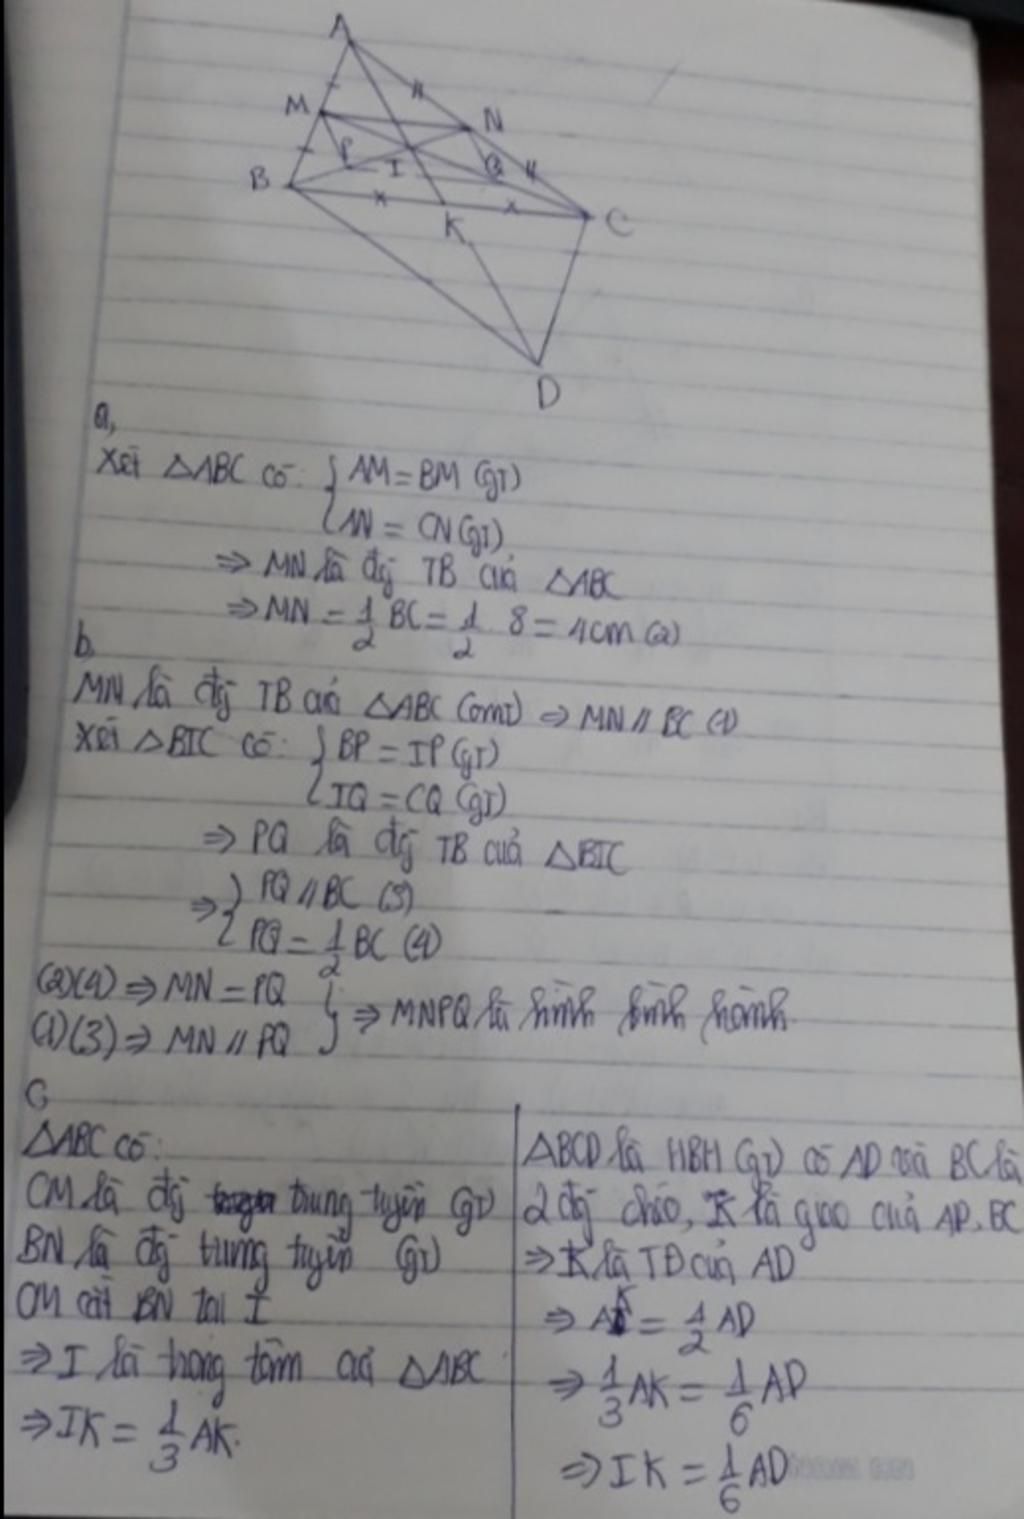 A
M
N
P
I
Q
B
K
C
D
a,
Xét △ABC có: { AM = BM (gt)
{ AN = CN (gt)
⇒ MN là đg TB của △ABC
⇒ MN = 1/2 BC = 1/2 8 = 4cm (2)
b,
MN là đg TB của △ABC (cmt) ⇒ MN // BC (1)
Xét △BIC có: { BP = IP (gt)
{ IQ = CQ (gt)
⇒ PQ là đg TB của △BIC
⇒ { PQ // BC (3)
{ PQ = 1/2 BC (4)
(2)(4) ⇒ MN = PQ
(1)(3) ⇒ MN // PQ } ⇒ MNPQ là hình bình hành.
C
△ABC có:
CM là đg trung tuyến (gt)
BN là đg trung tuyến (gt)
CM cắt BN tại I
⇒ I là trọng tâm của △ABC
⇒ IK = 1/3 AK.
△BCD là HBH (gt) có AD và BC là
2 đg chéo, K là giao của AD, BC
⇒ K là TĐ của AD
⇒ AK = 1/2 AD
⇒ 1/3 AK = 1/6 AD
⇒ IK = 1/6 AD